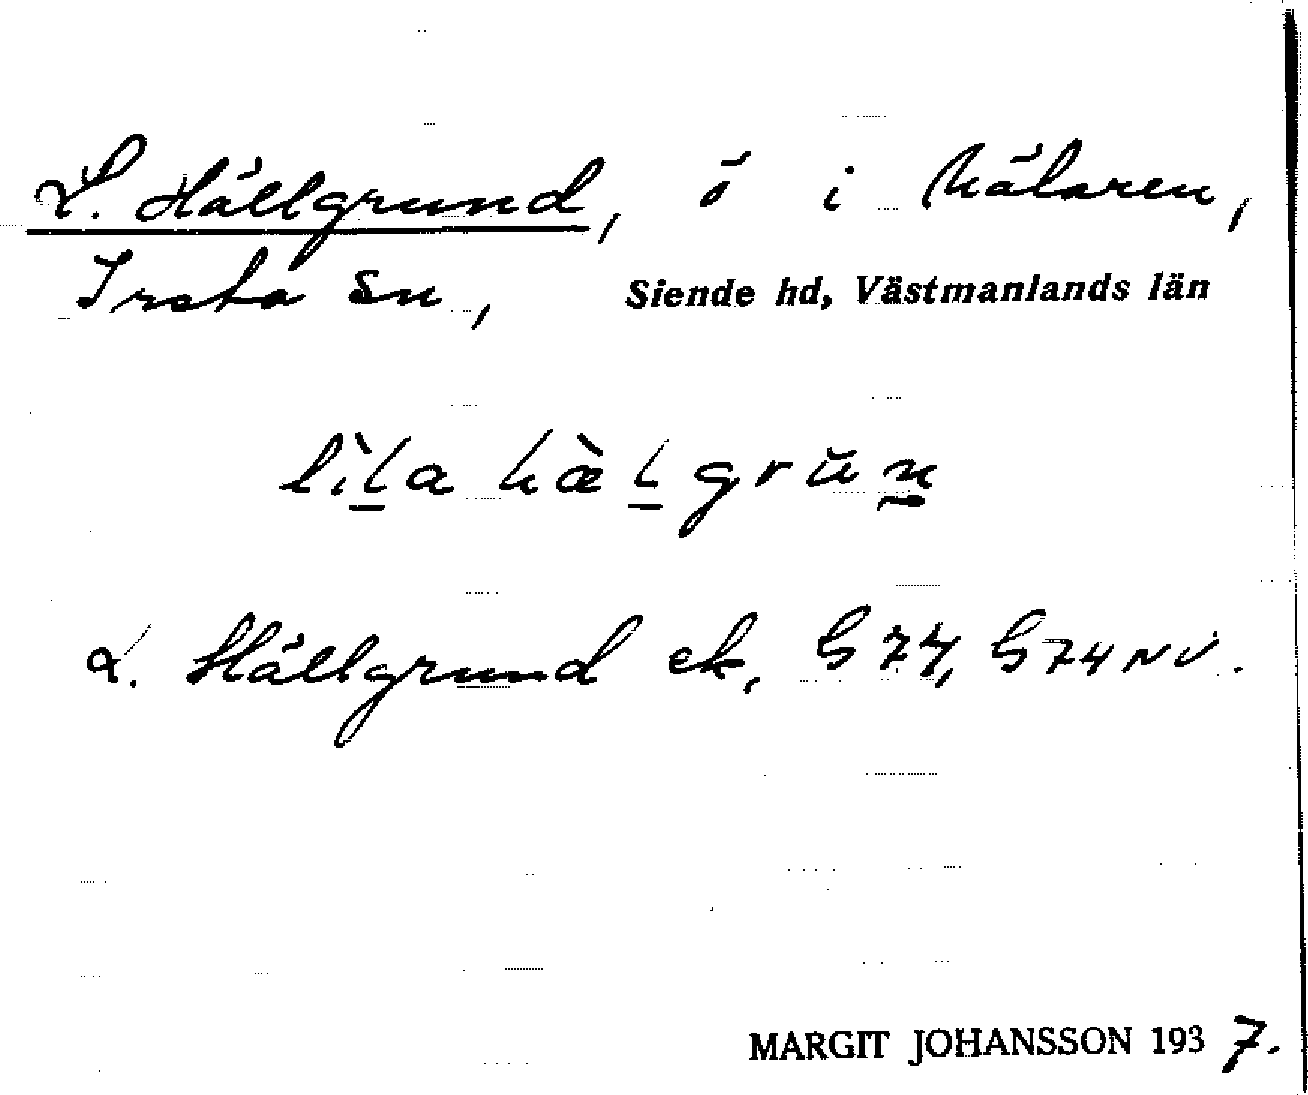 L. Hällgrund, ö i Mälaren,
Irsta sn, Siende hd, Västmanlands län
lìla hæ̀lgrŭn
L. Hällgrund ek, G 74, G 74 NV.
MARGIT JOHANSSON 1937.